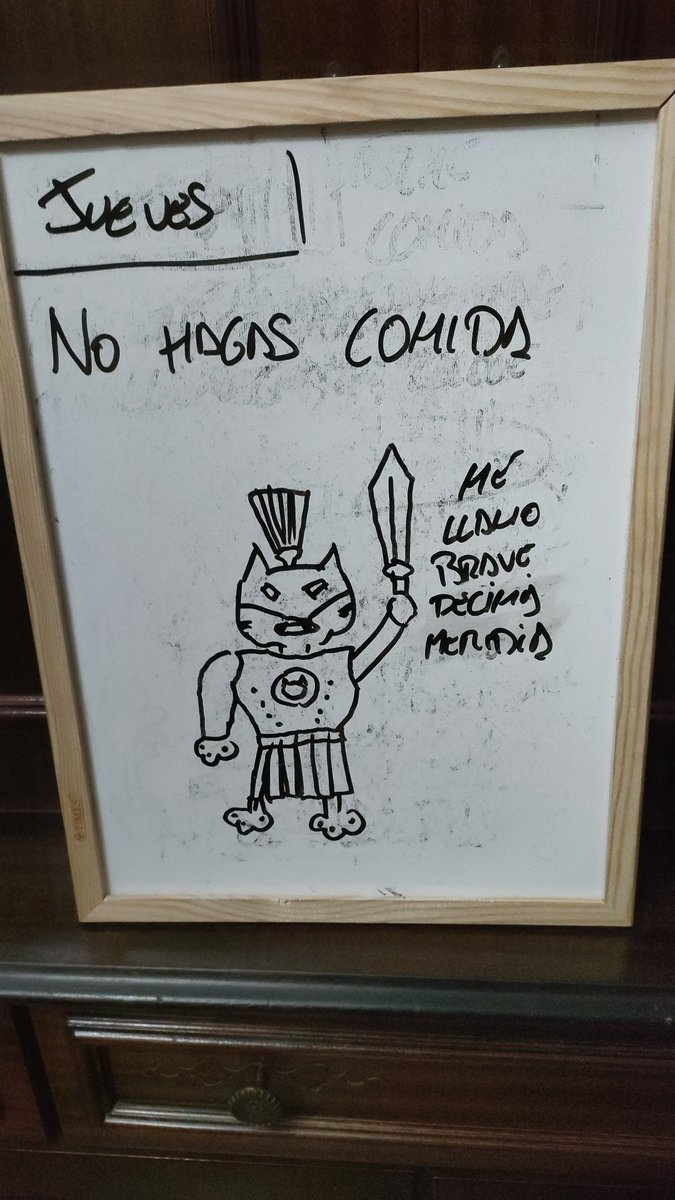 JUEVES
NO HAGAS COMIDA
ME
LLAMO
BRAVE
DÉCIMO
MERIDIA